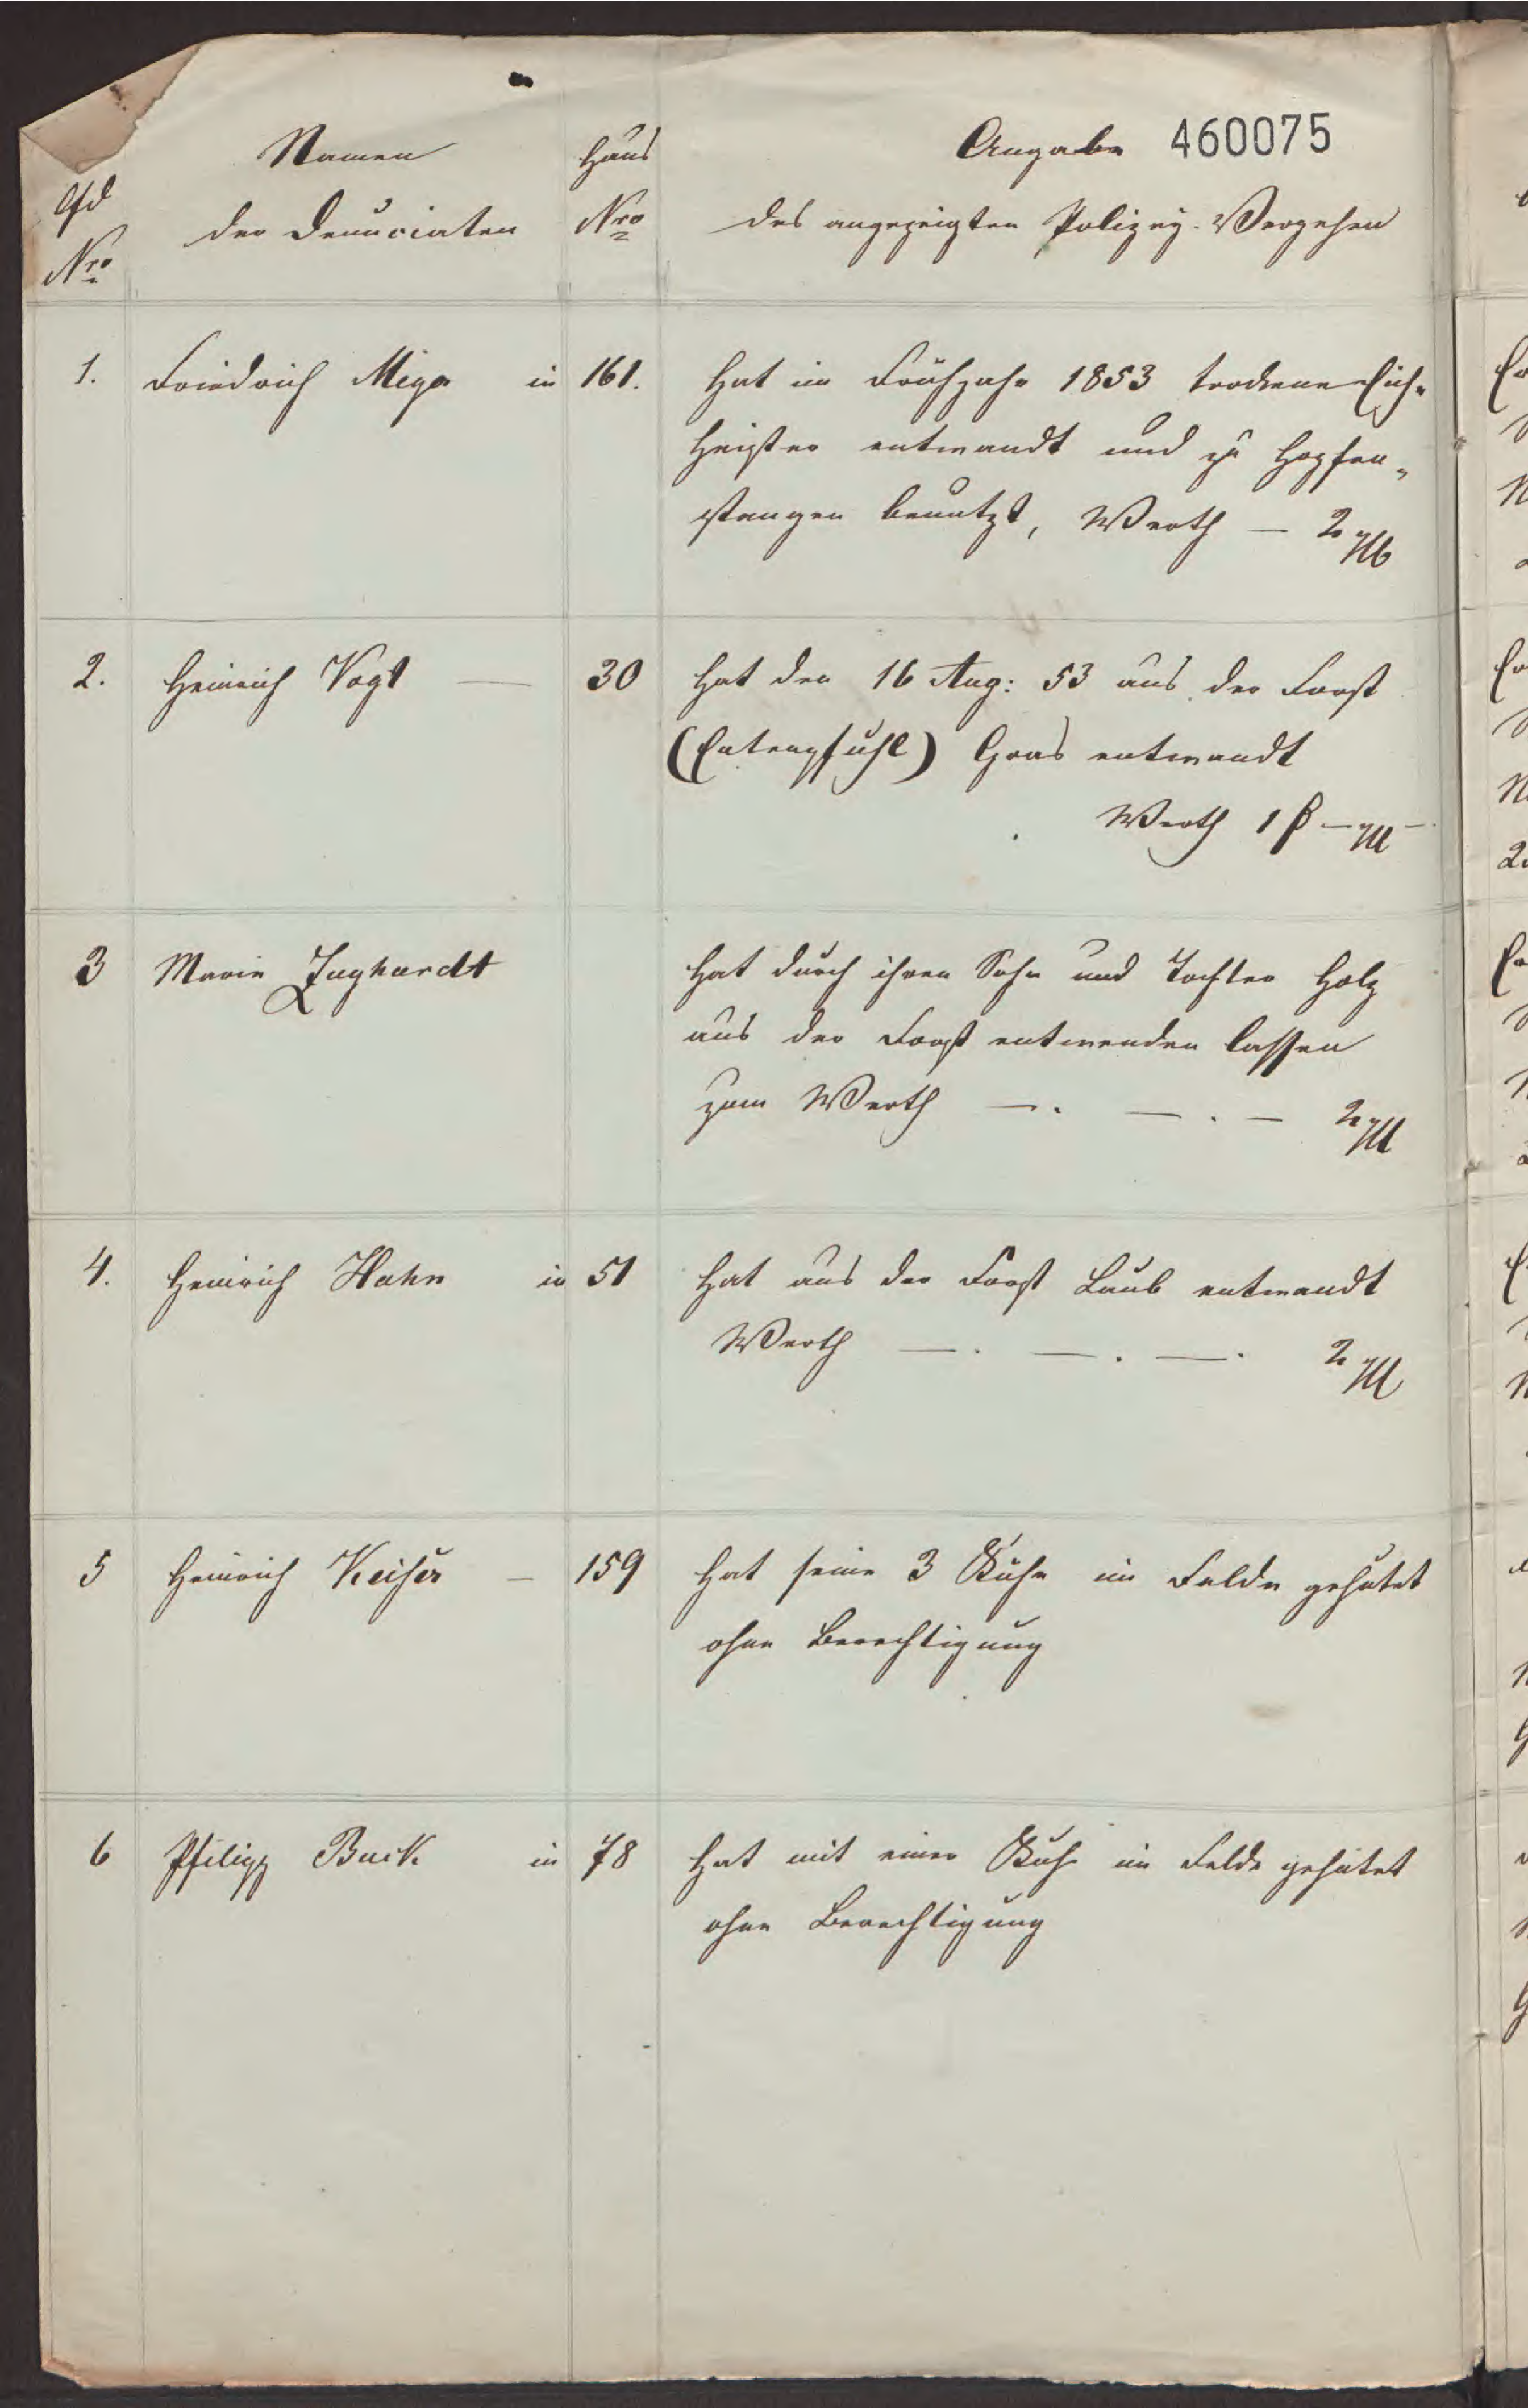 Namen
Haus
Angabe 460075
lfd
der Denunciaten
Nro
des angezeigten Polizey-Vergehen
Nro
1. Friedrich Meyer in 161. Hat im Frühjahr 1853 trockene Eich-
Heister entwandt und zu Hopfen-
stangen benutzt, Werth — 2
2. Heinrich Vogt — 30 Hat den 16 Aug: 53 aus der Forst
(Entenpfuhl) Gras entwandt
Werth 1 ß —
3 Marie Junghardt Hat durch ihren Sohn und Tochter Holz
aus der Forst entwenden lassen
zum Werth —. —. — 2
4. Heinrich Hahn in 51 Hat aus der Forst Laub entwandt
Werth —. —. —. 2
5 Heinrich Keiser — 159 Hat seine 3 Kühe im Felde gehütet
ohne Berechtigung
6 Philipp Buck in 78 Hat mit einer Kuh im Felde gehütet
ohne Berechtigung